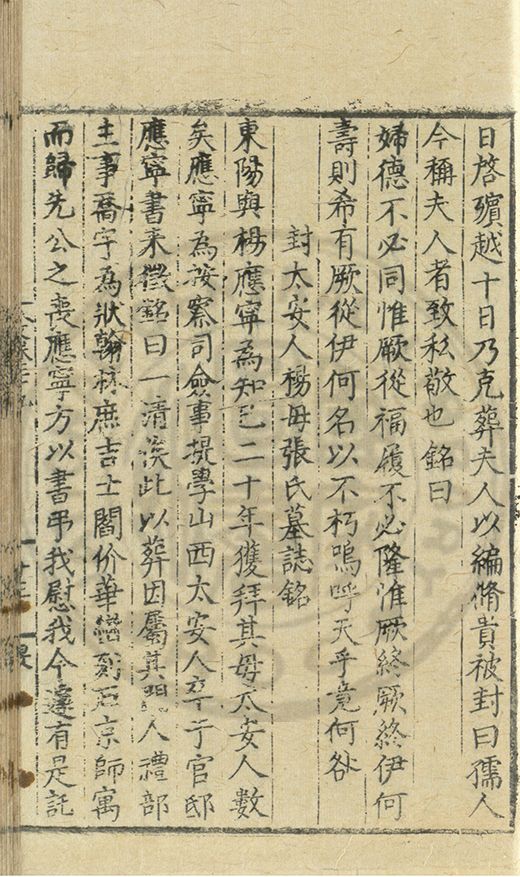 日啓殯越十日乃克葬夫人以編脩貴被封曰孺人
今稱夫人者致私敬也銘曰
婦德不必同惟厥從福履不必隆惟厥終厥終伊何
壽則希有厥從伊何名以不朽嗚呼天乎竟何咎
封太安人楊母張氏墓誌銘
東陽與楊應寧為知己二十年獲拜其母太安人數
矣應寧為按察司僉事提學山西太安人卒于官邸
應寧書来徵銘曰一清俟此以葬因屬其門人禮部
主事喬宇為狀翰林庶吉士閻价華懋刻至京師寓
而歸先公之喪應寧方以書弔我慰我今遽有是託